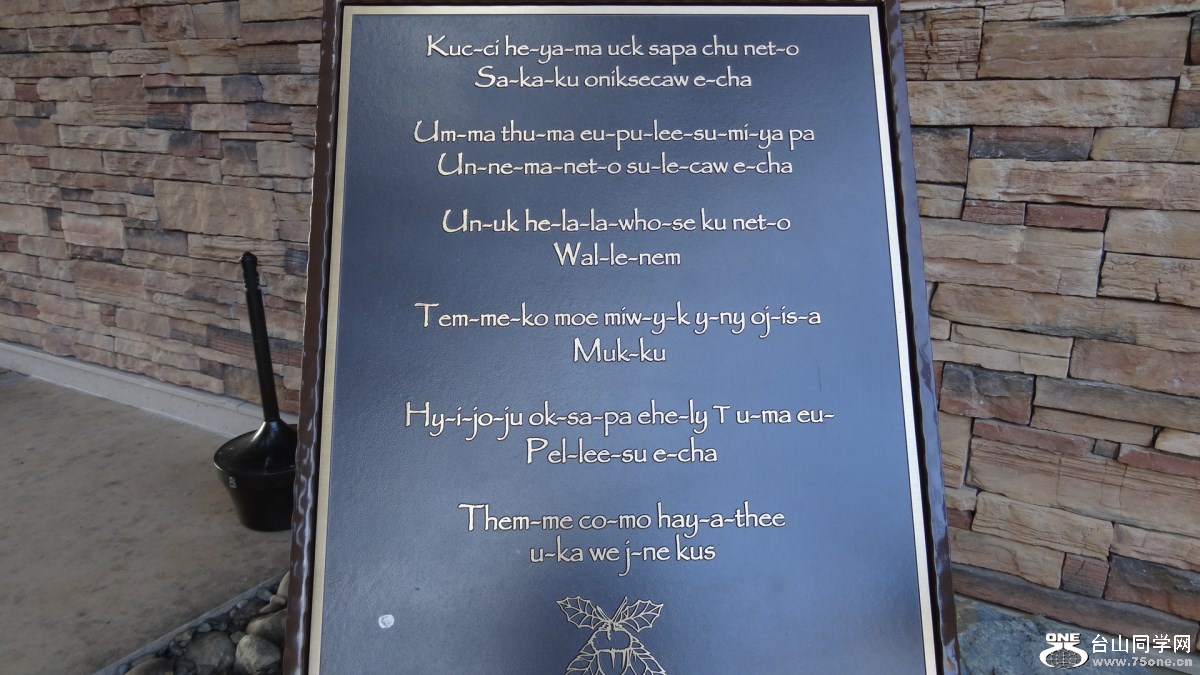 Kuc-ci he-ya-ma uck sapa chu net-o
Sa-ka-ku oniksecaw e-cha
Um-ma thu-ma eu-pu-lee-su-mi-ya pa
Un-ne-ma-net-o su-le-caw e-cha
Un-uk he-la-la-who-se ku net-o
Wal-le-nem
Tem-me-ko moe miw-y-k y-ny oj-is-a
Muk-ku
Hy-i-jo-ju ok-sa-pa ehe-ly T u-ma eu-
Pel-lee-su e-cha
Them-me co-mo hay-a-thee
u-ka we j-ne kus
ONE
台山同学网
www.75one.cn